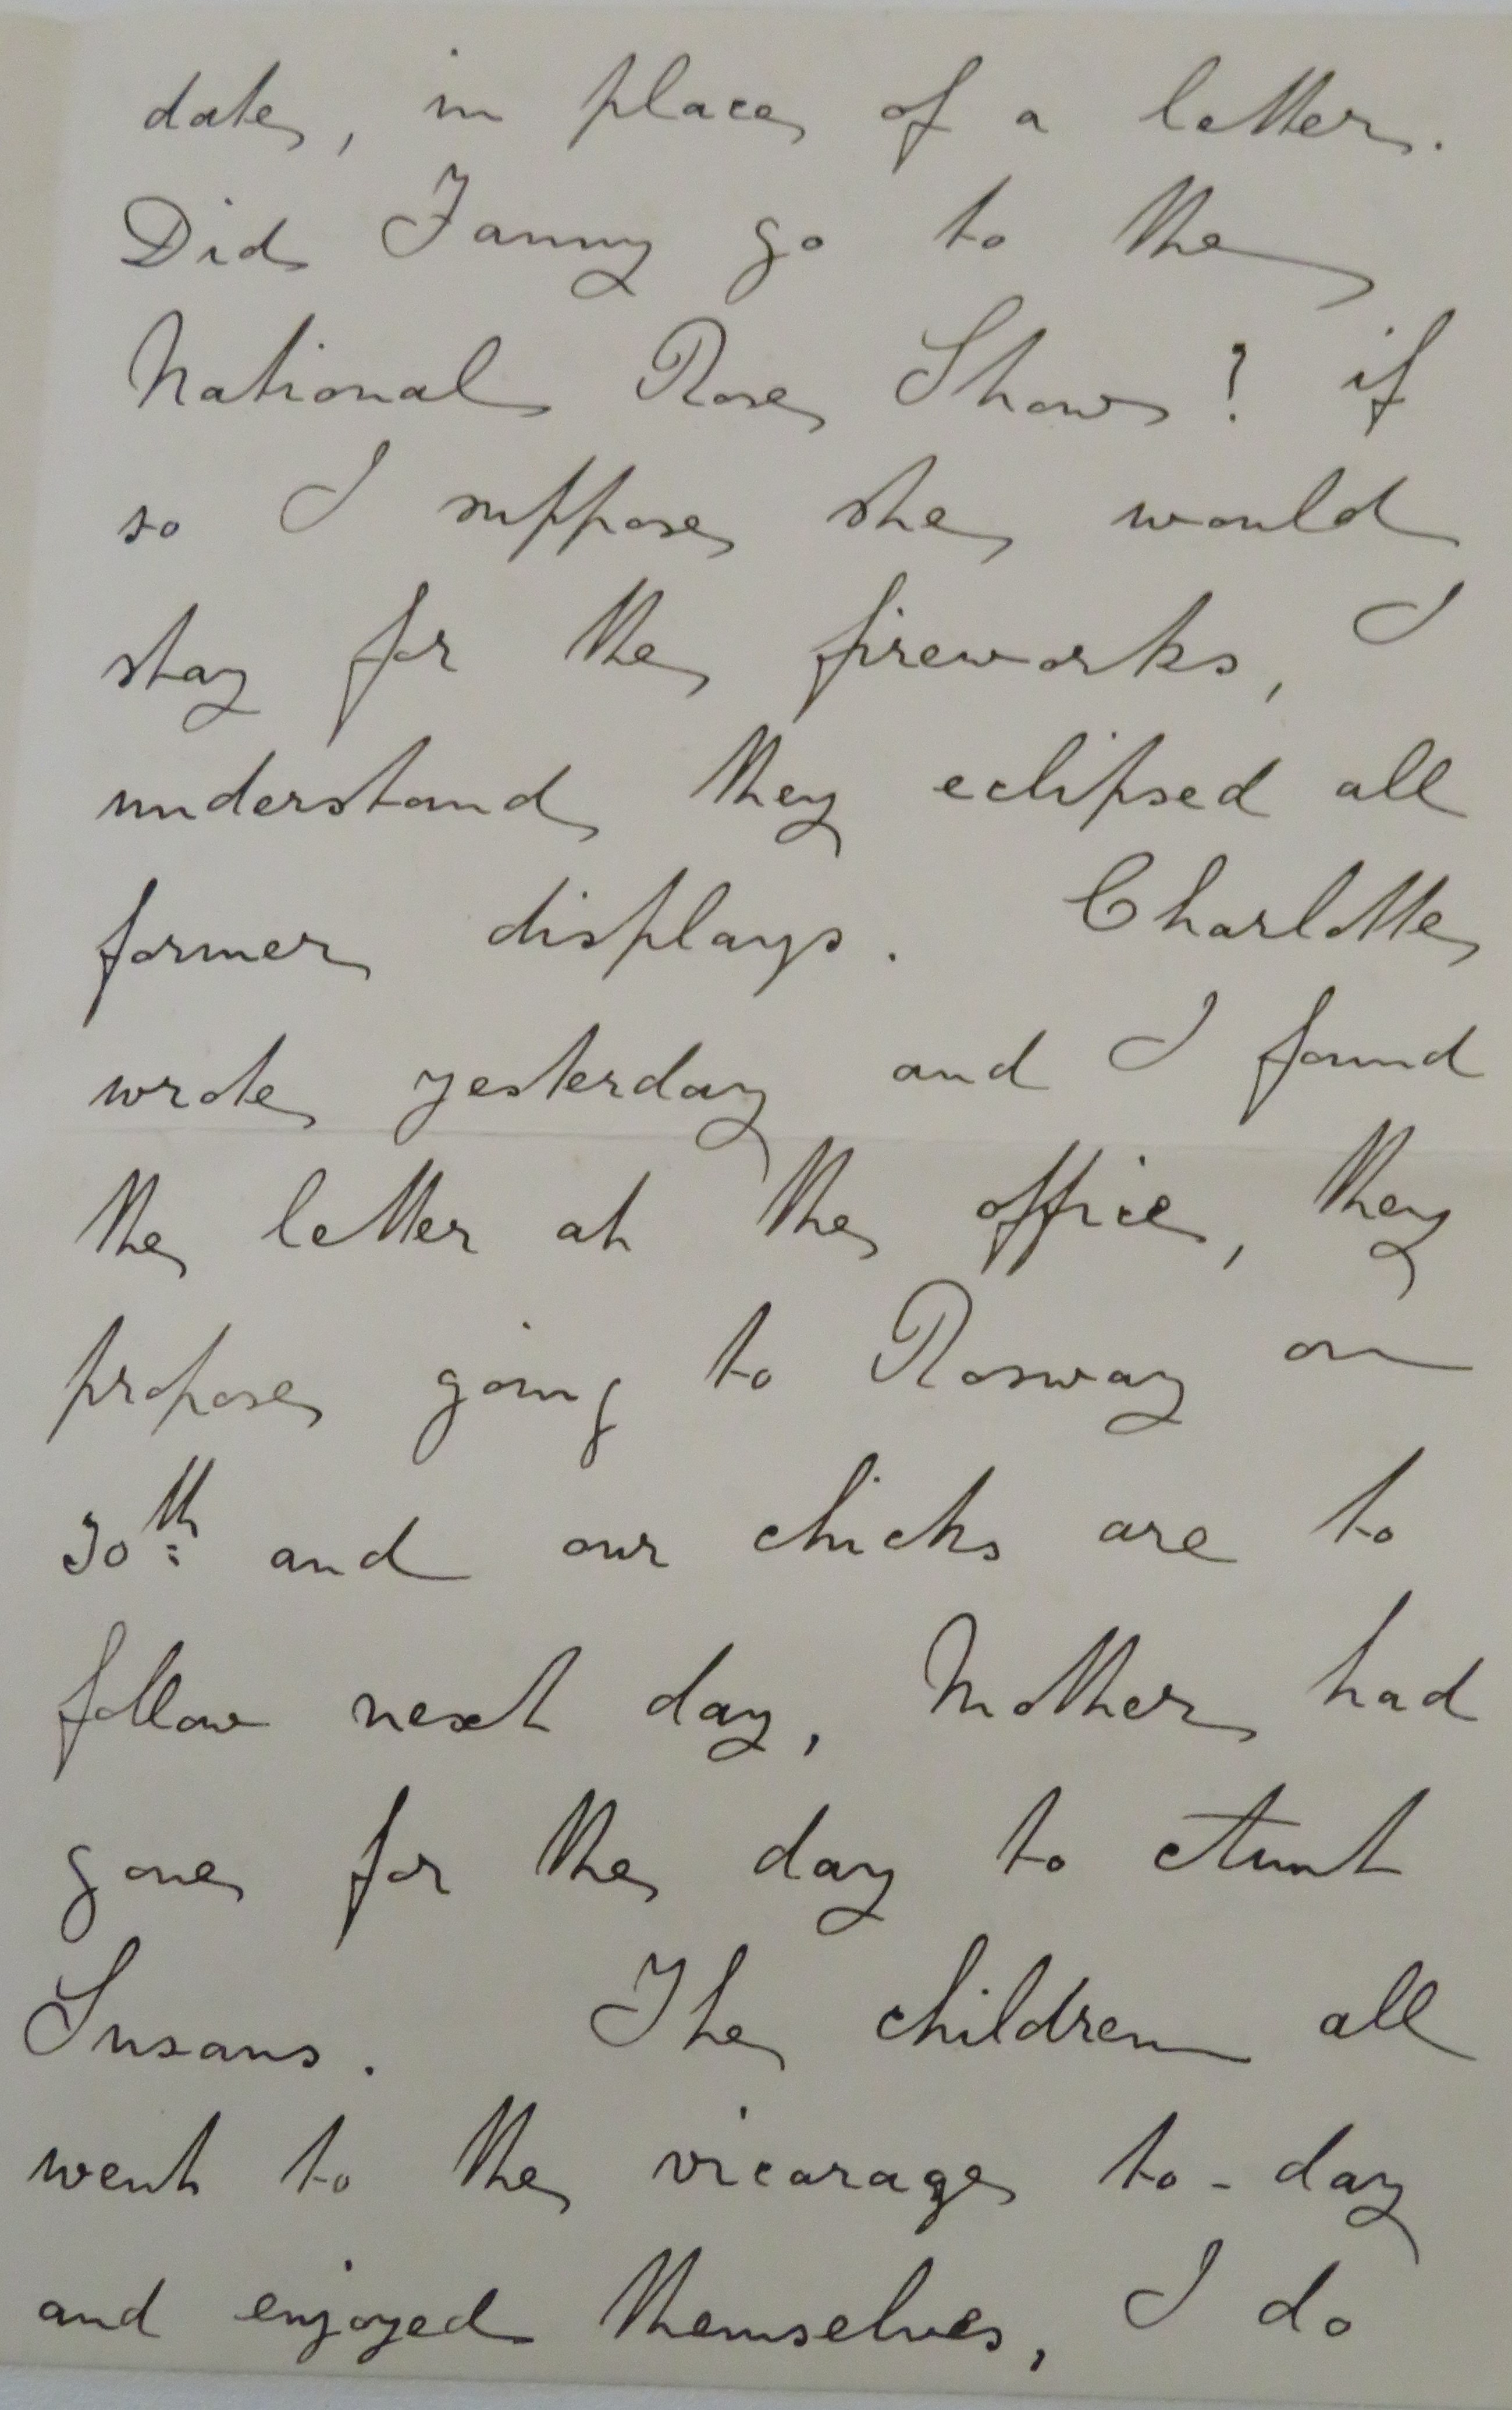 date, in place of a letter.
Did Fanny go to the
National Rose Show? if
so I suppose she would
stay for the fireworks, I
understand they eclipsed all
former displays. Charlotte
wrote yesterday and I found
the letter at the office, they
propose going to Rosway on
30th and our chicks are to
follow next day, Mother had
gone for the day to Aunt
Susans. The children all
went to the vicarage to-day
and enjoyed themselves, I do